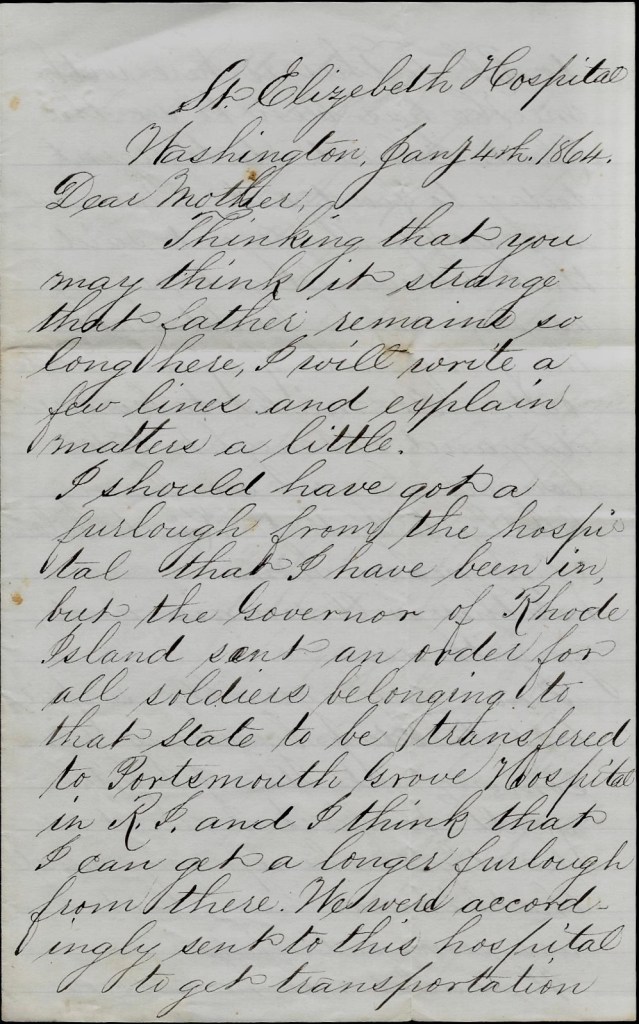 St. Elizebeth Hospital
Washington, Jany 4th. 1864.
Dear Mother,
Thinking that you
may think it strange
that father remains so
long here, I will write a
few lines and explain
matters a little.
I should have got a
furlough from the hospi
tal that I have been in,
but the Governor of Rhode
Island sent an order for
all soldiers belonging to
that State to be transfered
to Portsmouth Grove Hospital
in R.I. and I think that
I can get a longer furlough
from there. We were accord-
ingly sent to this hospital
to get transportation